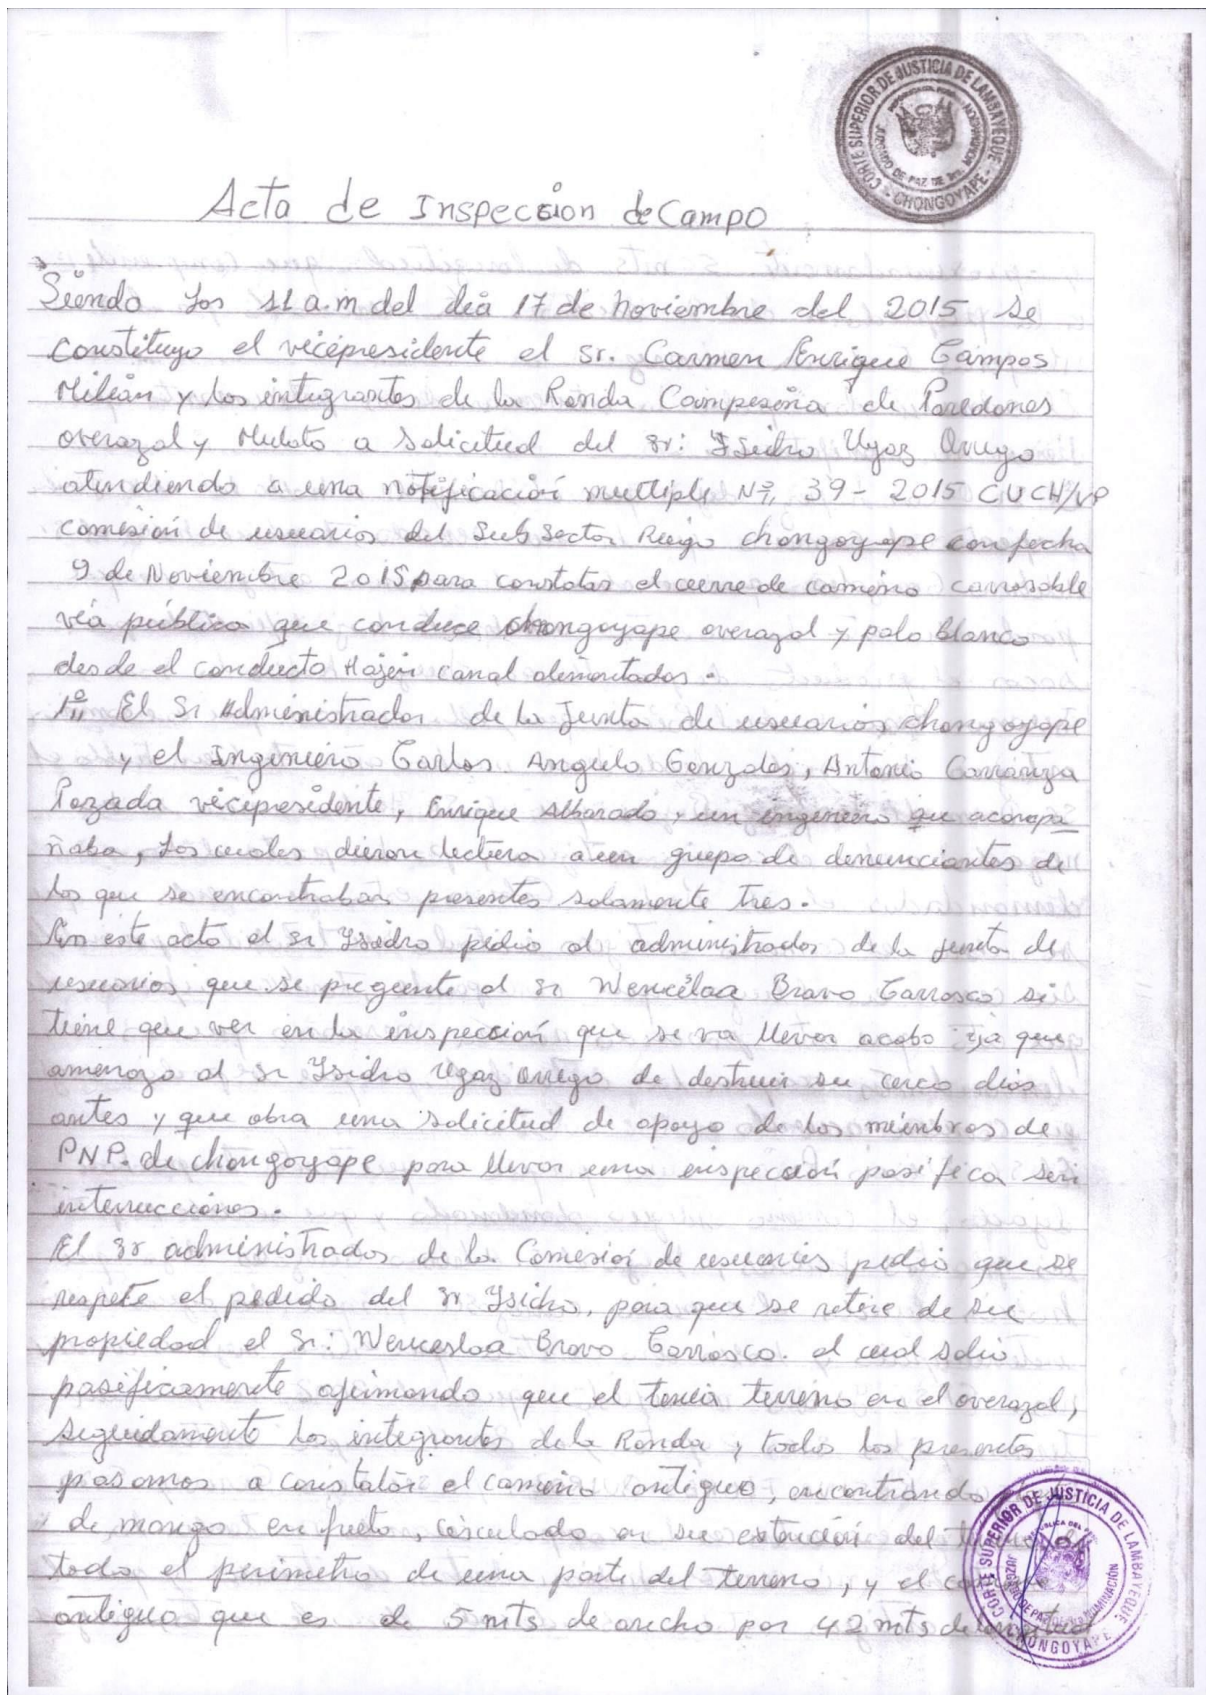 CORTE SUPERIOR DE JUSTICIA DE LAMBAYEQUE
JUZGADO DE PAZ DE NOMINACION
- CHONGOYAPE -
Acta de Inspeccion de Campo
Siendo los 11 a.m del dia 17 de noviembre del 2015 se
constituyo el vicepresidente el Sr. Carmen Enrique Campos
Milian y los integrantes de la Ronda Campesina de Paredones
overazal y Mulato a solicitud del Sr: Ysidro Ugaz Orrego
atendiendo a una notificación multiple Nº 39 - 2015 CUCH/VP
comisión de usuarios del Sub Sector Riego chongoyape con fecha
9 de Noviembre 2015 para constatar el cierre de camino carrosable
via pública que conduce chongoyape overazal y palo blanco
desde el conducto canal alimentador.
1º El Sr Administrador de la Junta de usuarios chongoyape
y el Ingeniero Carlos Angulo Gonzales, Antonio Carranza
Pozada vicepresidente, Enrique Albarado, un ingeniero que acompa
ñaba, los cuales dieron lectura a un grupo de denunciantes de
los que se encontraban presentes solamente tres.
En este acto el sr Ysidro pidio al administrador de la junta de
usuarios que se pregunte al sr Wencelaa Bravo Carrasco si
tiene que ver en la inspección que se va llevar acabo ya que
amenazo al sr Ysidro Ugaz Orrego de destruir su cerco dias
antes y que obra una solicitud de apoyo de los miembros de
PNP. de chongoyape para llevar una inspección pasifica sin
interrucciones.
El sr administrador de la Comisión de usuarios pidio que se
respete el pedido del sr Ysidro, para que se retire de su
propiedad el Sr: Wenceslaa Bravo Carrasco. el cual salio
pasificamente afirmando que el tenia terreno en el overazal,
seguidamente los integrantes de la Ronda y todos los presentes
pasamos a constatar el camino antiguo, encontrando
de mango en fruto, circulado en su extención del
todo el perimetro de una parte del terreno, y el
antiguo que es de 5 mts de ancho por 42 mts de
CORTE SUPERIOR DE JUSTICIA DE LAMBAYEQUE
JUZGADO DE PAZ NOMINACIÓN
CHONGOYAPE